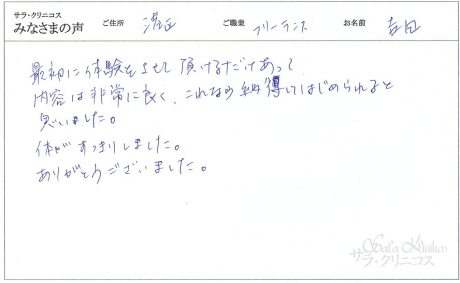 サラ・クリニコス
みなさまの声 ご住所 港区 ご職業 フリーランス お名前
最初に体験をさせて頂けるだけあって
内容は非常に良く、これなら納得してはじめられると
思いました。
体がすっきりしました。
ありがとうございました。
Sala Kliniikos
サラ・クリニコス